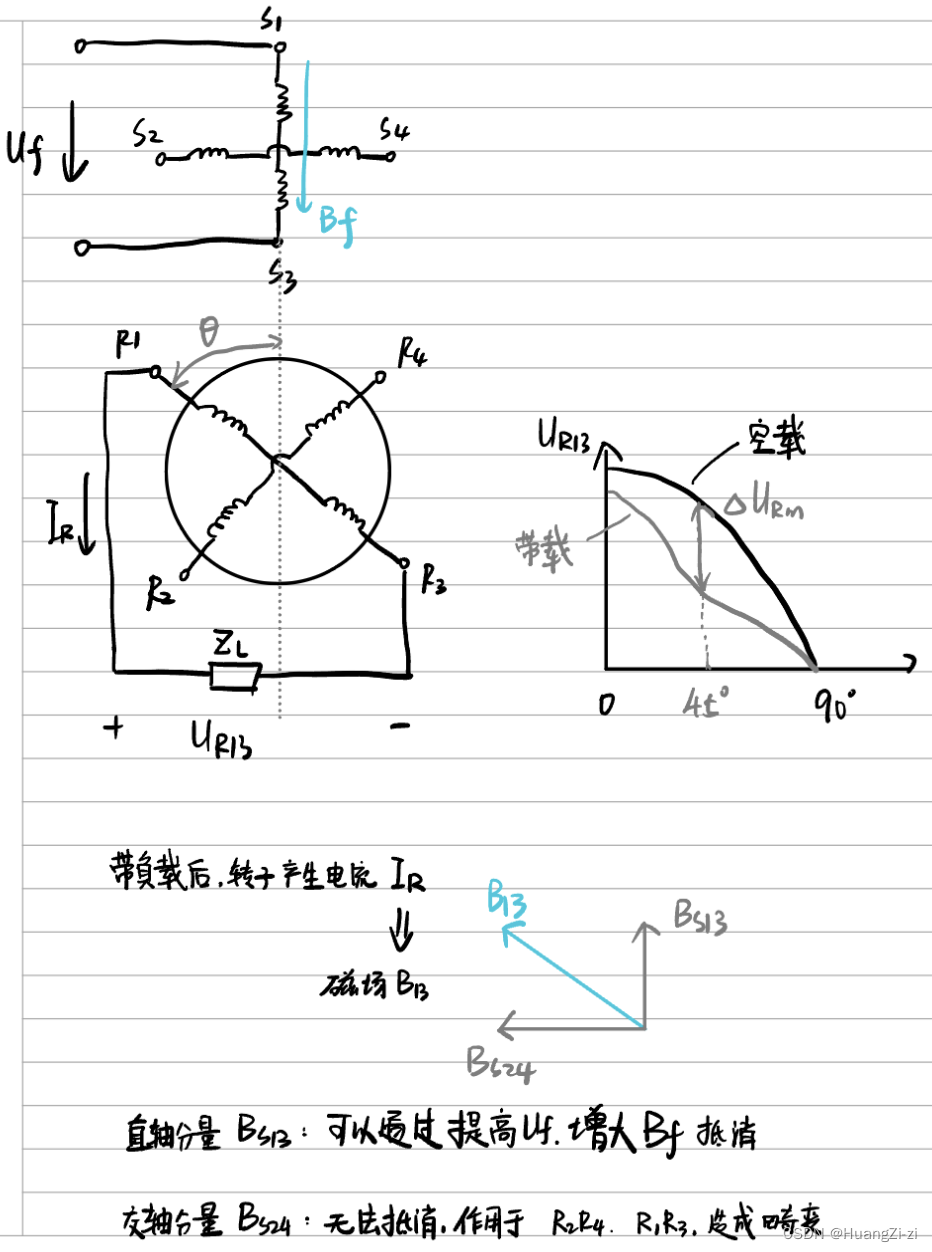 S1
S2
S4
Uf
Bf
S3
θ
R1
R4
IR
R2
R3
ZL
+ UR13 -
UR13
空载
ΔURm
带载
0 45° 90°
带负载后,转子产生电流 IR
⇓
磁场 B13
B13
BS13
BS24
直轴分量 BS13: 可以通过提高Uf,增大Bf 抵消
交轴分量 BS24: 无法抵消,作用于 R2R4、R1R3,造成畸变
CSDN @HuangZi-zi